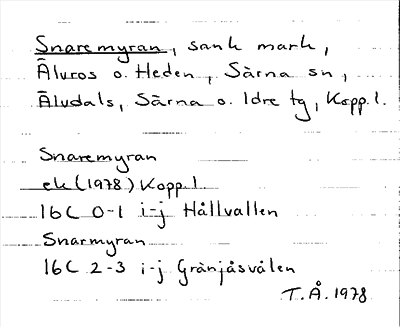 Snaremyran, sank mark,
Älvros o. Heden, Särna sn,
Älvdals, Särna o. Idre tg, Kopp. l.
Snaremyran
ek (1978) Kopp. l
16C 0-1 i-j Hållvallen
Snarmyran
16C 2-3 i-j Gränjåsvålen
T.Å. 1978